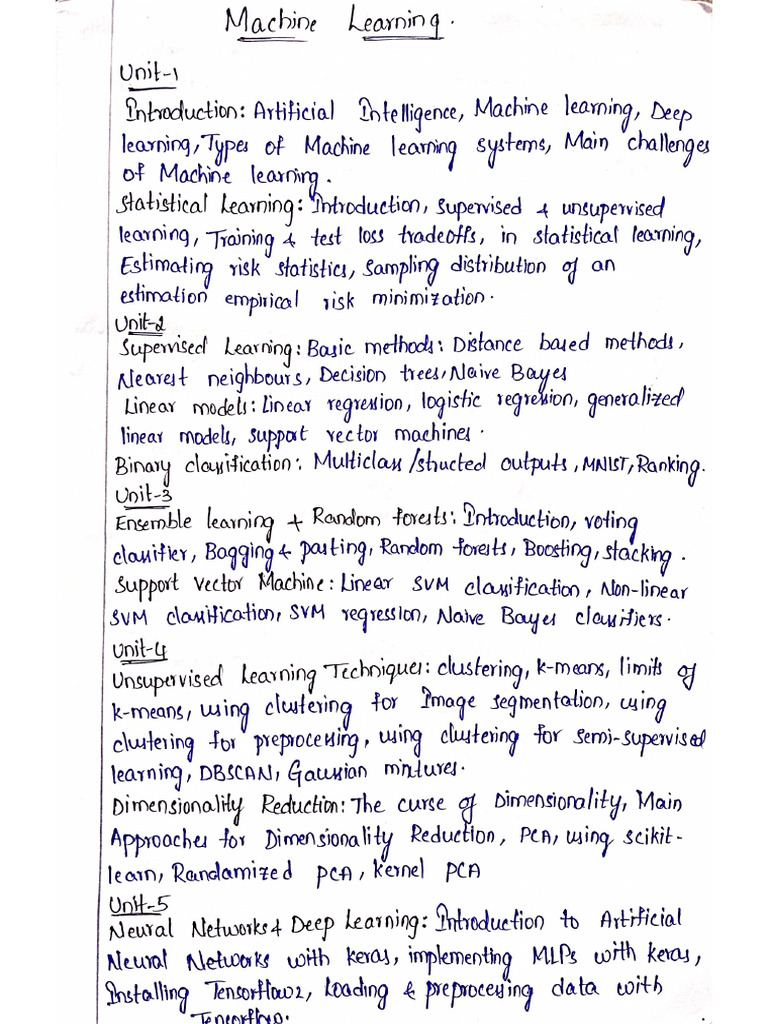 Machine Learning.
Unit-1
Introduction: Artificial Intelligence, Machine learning, Deep
learning, Types of Machine learning systems, Main challenges
of Machine learning.
Statistical Learning: Introduction, Supervised & unsupervised
learning, Training & test loss tradeoffs, in statistical learning,
Estimating risk statistics, Sampling distribution of an
estimation empirical risk minimization.
Unit-2
Supervised Learning: Basic methods: Distance based methods,
Nearest neighbours, Decision trees, Naive Bayes
Linear models: Linear regression, logistic regression, generalized
linear models, support vector machines.
Binary classification: Multiclass/stucted outputs, MNIST, Ranking.
Unit-3
Ensemble learning & Random forests: Introduction, voting
classifier, Bagging & pasting, Random forests, Boosting, stacking.
Support Vector Machine: Linear SVM classification, Non-linear
SVM classification, SVM regression, Naive Bayes classifiers.
Unit-4
Unsupervised Learning Techniques: clustering, k-means, limits of
k-means, using clustering for Image segmentation, using
clustering for preprocessing, using clustering for semi-supervised
learning, DBSCAN, Gaussian mixtures.
Dimensionality Reduction: The curse of Dimensionality, Main
Approaches for Dimensionality Reduction, PCA, using scikit-
learn, Randamized PCA, Kernel PCA
Unit-5
Neural Networks & Deep Learning: Introduction to Artificial
Neural Networks with keras, implementing MLPs with keras,
Installing Tensorflow2, Loading & preprocessing data with
Tensorflow.